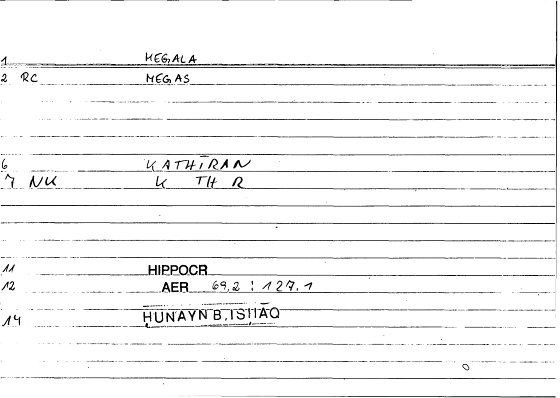 1 MEGALA
2 RC MEGAS
6 KATHĪRAN
7 NK K TH R
11 HIPPOCR
12 AER 69,2 : 127.1
14 ḤUNAYN B. ISḤĀQ